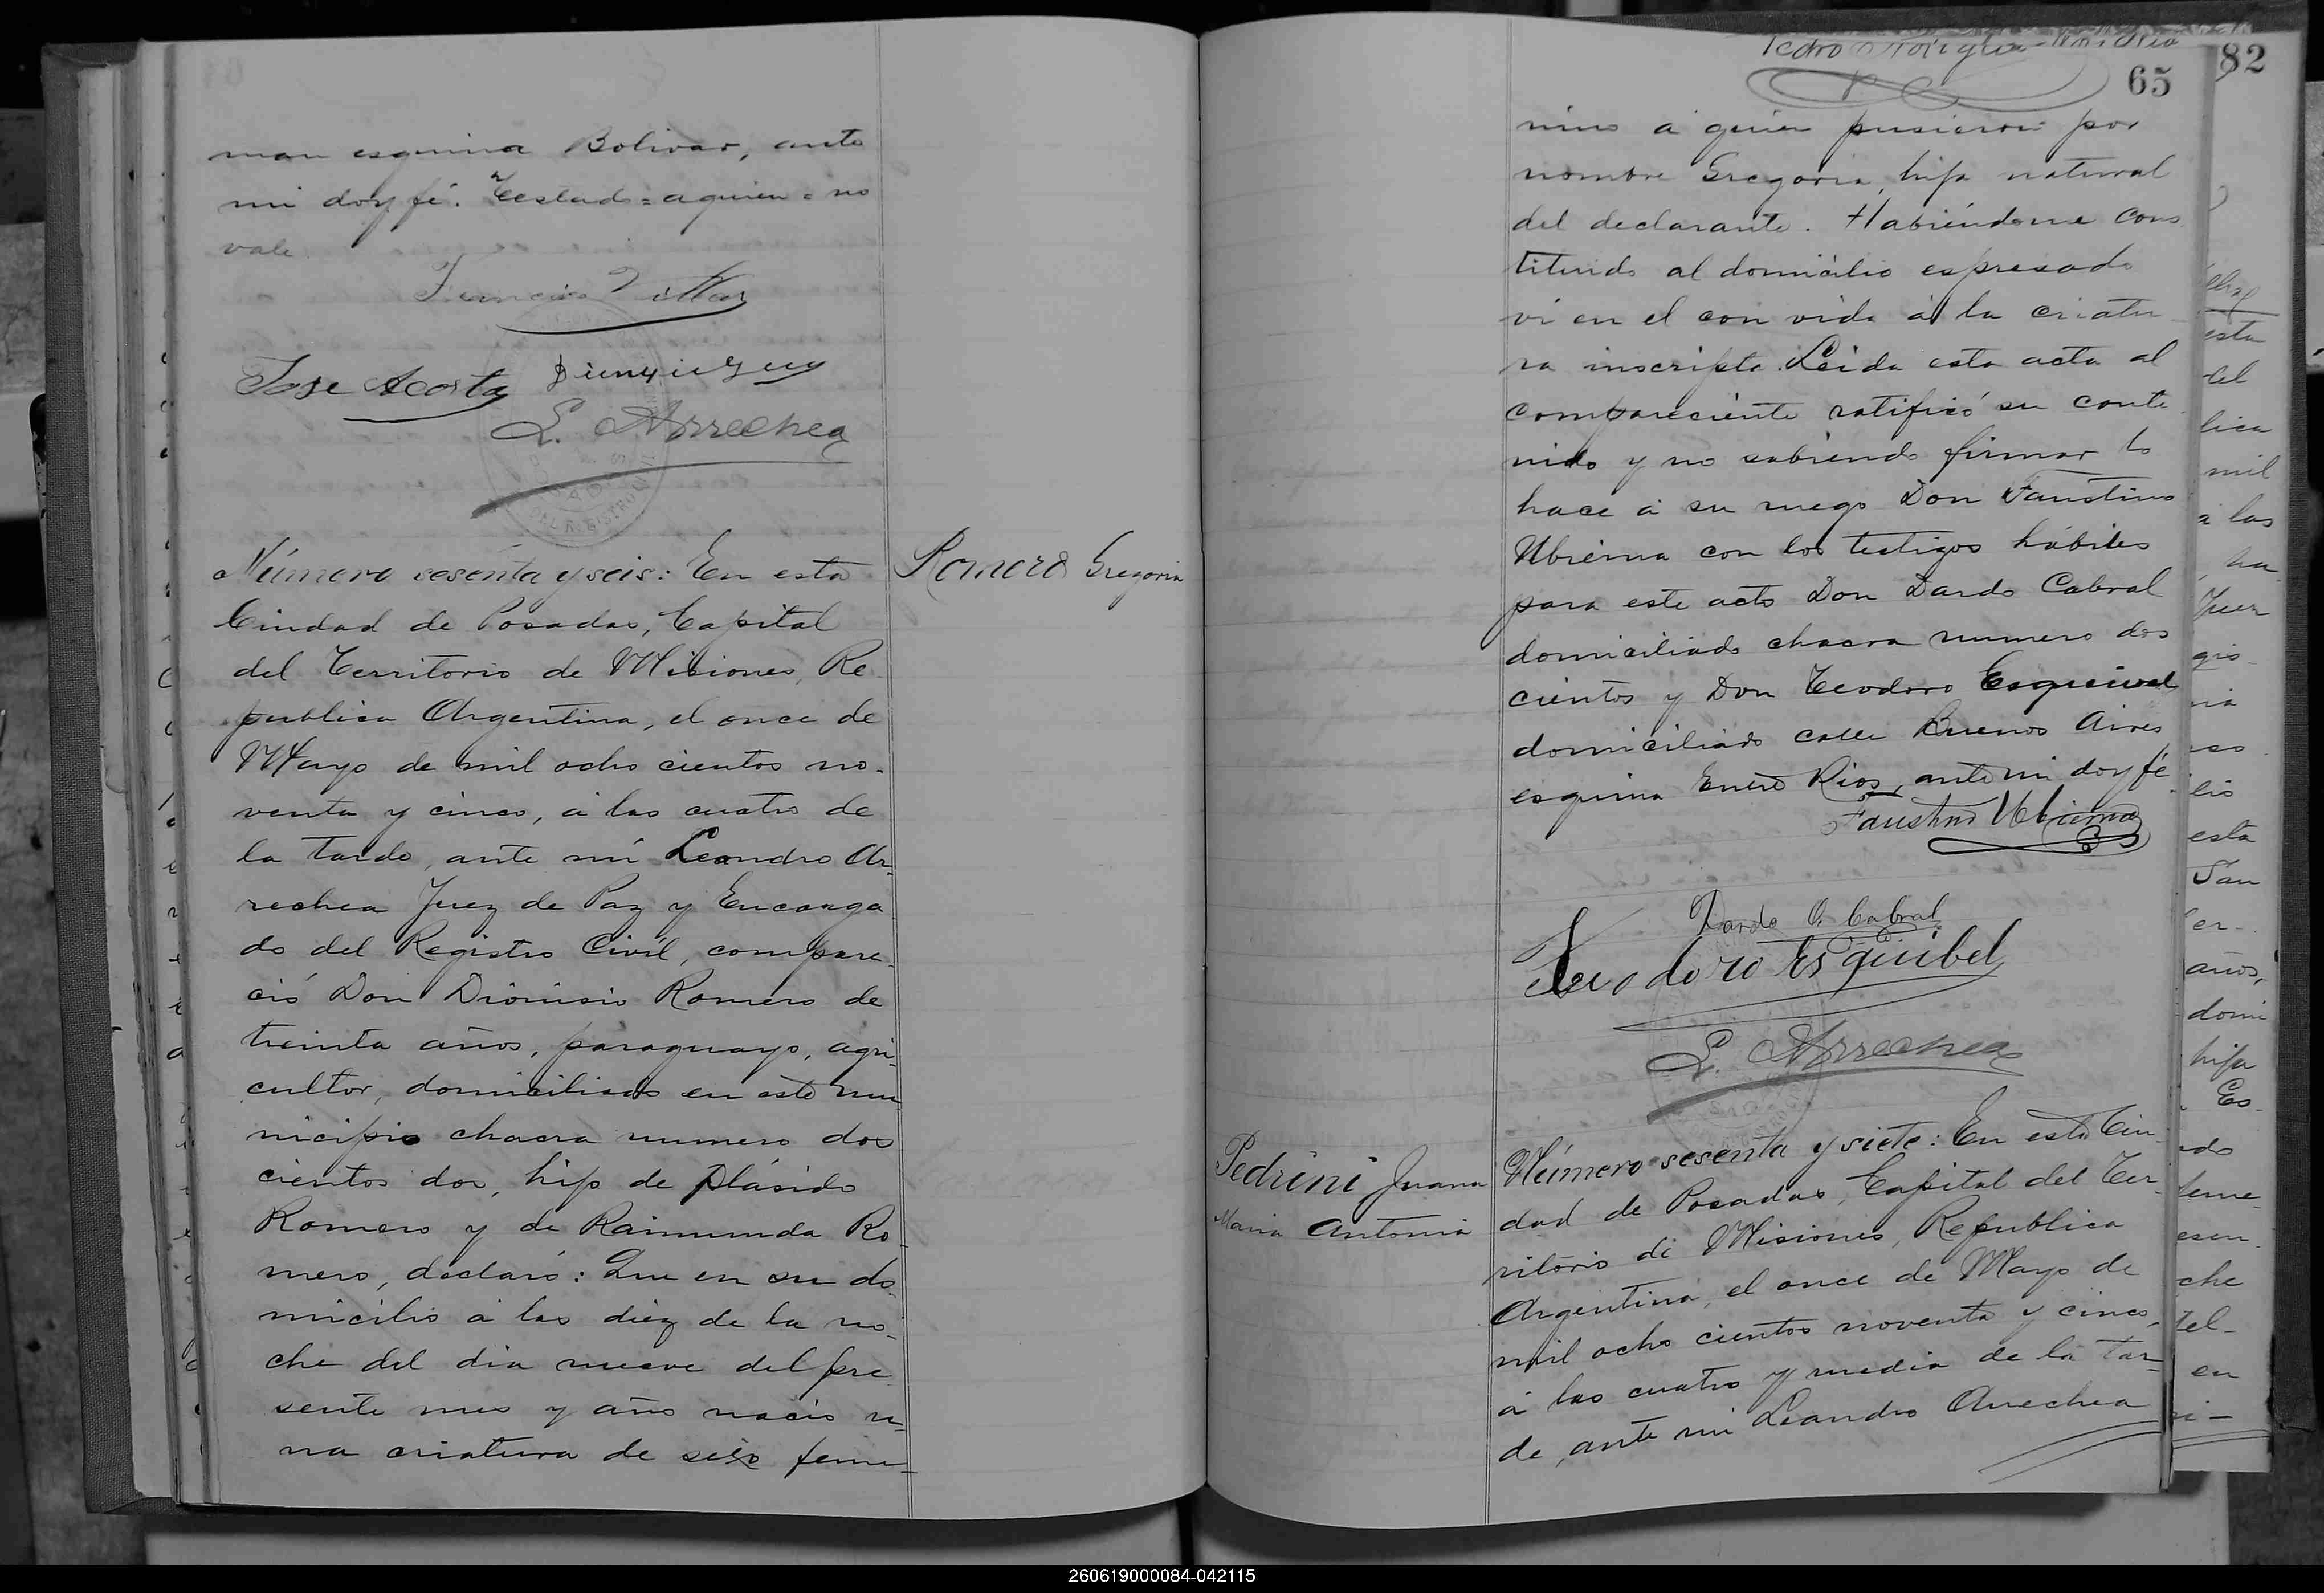 man esquina Bolivar, ante
mi doy fé. Testado = a quien = no
vale.
Francisco Villar
Jose Acosta
L. Arrechea
Número sesenta y seis: En esta
Ciudad de Posadas, Capital
del Territorio de Misiones, Re
publica Argentina, el once de
Mayo de mil ocho cientos no-
venta y cinco, á las cuatro de
la tarde, ante mi Leandro Ar-
rechea Juez de Paz y Encarga
do del Registro Civil, compare-
ció Don Dionisio Romero de
treinta años, paraguayo, agri-
cultor, domiciliado en este mu
nicipio chacra numero dos
cientos dos, hijo de Plásido
Romero y de Raimunda Ro-
mero, declaró: Que en su do-
micilio á las diez de la no-
che del dia nueve del pre
sente mes y año nació u-
na criatura de sexo feme-
Romero Gregoria
65
nino á quien pusieron por
nombre Gregoria, hija natural
del declarante. Habiéndome cons
tituido al domicilio espresado
ví en el con vida á la criatu-
ra inscripta. Leida esta acta al
compareciente ratificó su conte
nido y no sabiendo firmar lo
hace á su ruego Don Faustino
Ubierna con los testigos hábiles
para este acto Don Dardo Cabral
domiciliado chacra numero dos
cientos y Don Teodoro Esquivel
domiciliado calle Buenos Aires
esquina Entre Rios, ante mi doy fé
Faustino Ubierna
Dardo O. Cabral
Teodoro Esquibel
L. Arrechea
Pedrini Juana
Maria Antonia
Número sesenta y siete: En esta Ciu-
dad de Posadas, Capital del Ter-
ritorio de Misiones, Republica
Argentina, el once de Mayo de
mil ocho cientos noventa y cinco,
á las cuatro y media de la tar-
de, ante mi Leandro Arrechea
82
esta
del
lica
mil
á las
Juez
esta
San
años,
domi
hija
Es-
che
tel-
en
260619000084-042115